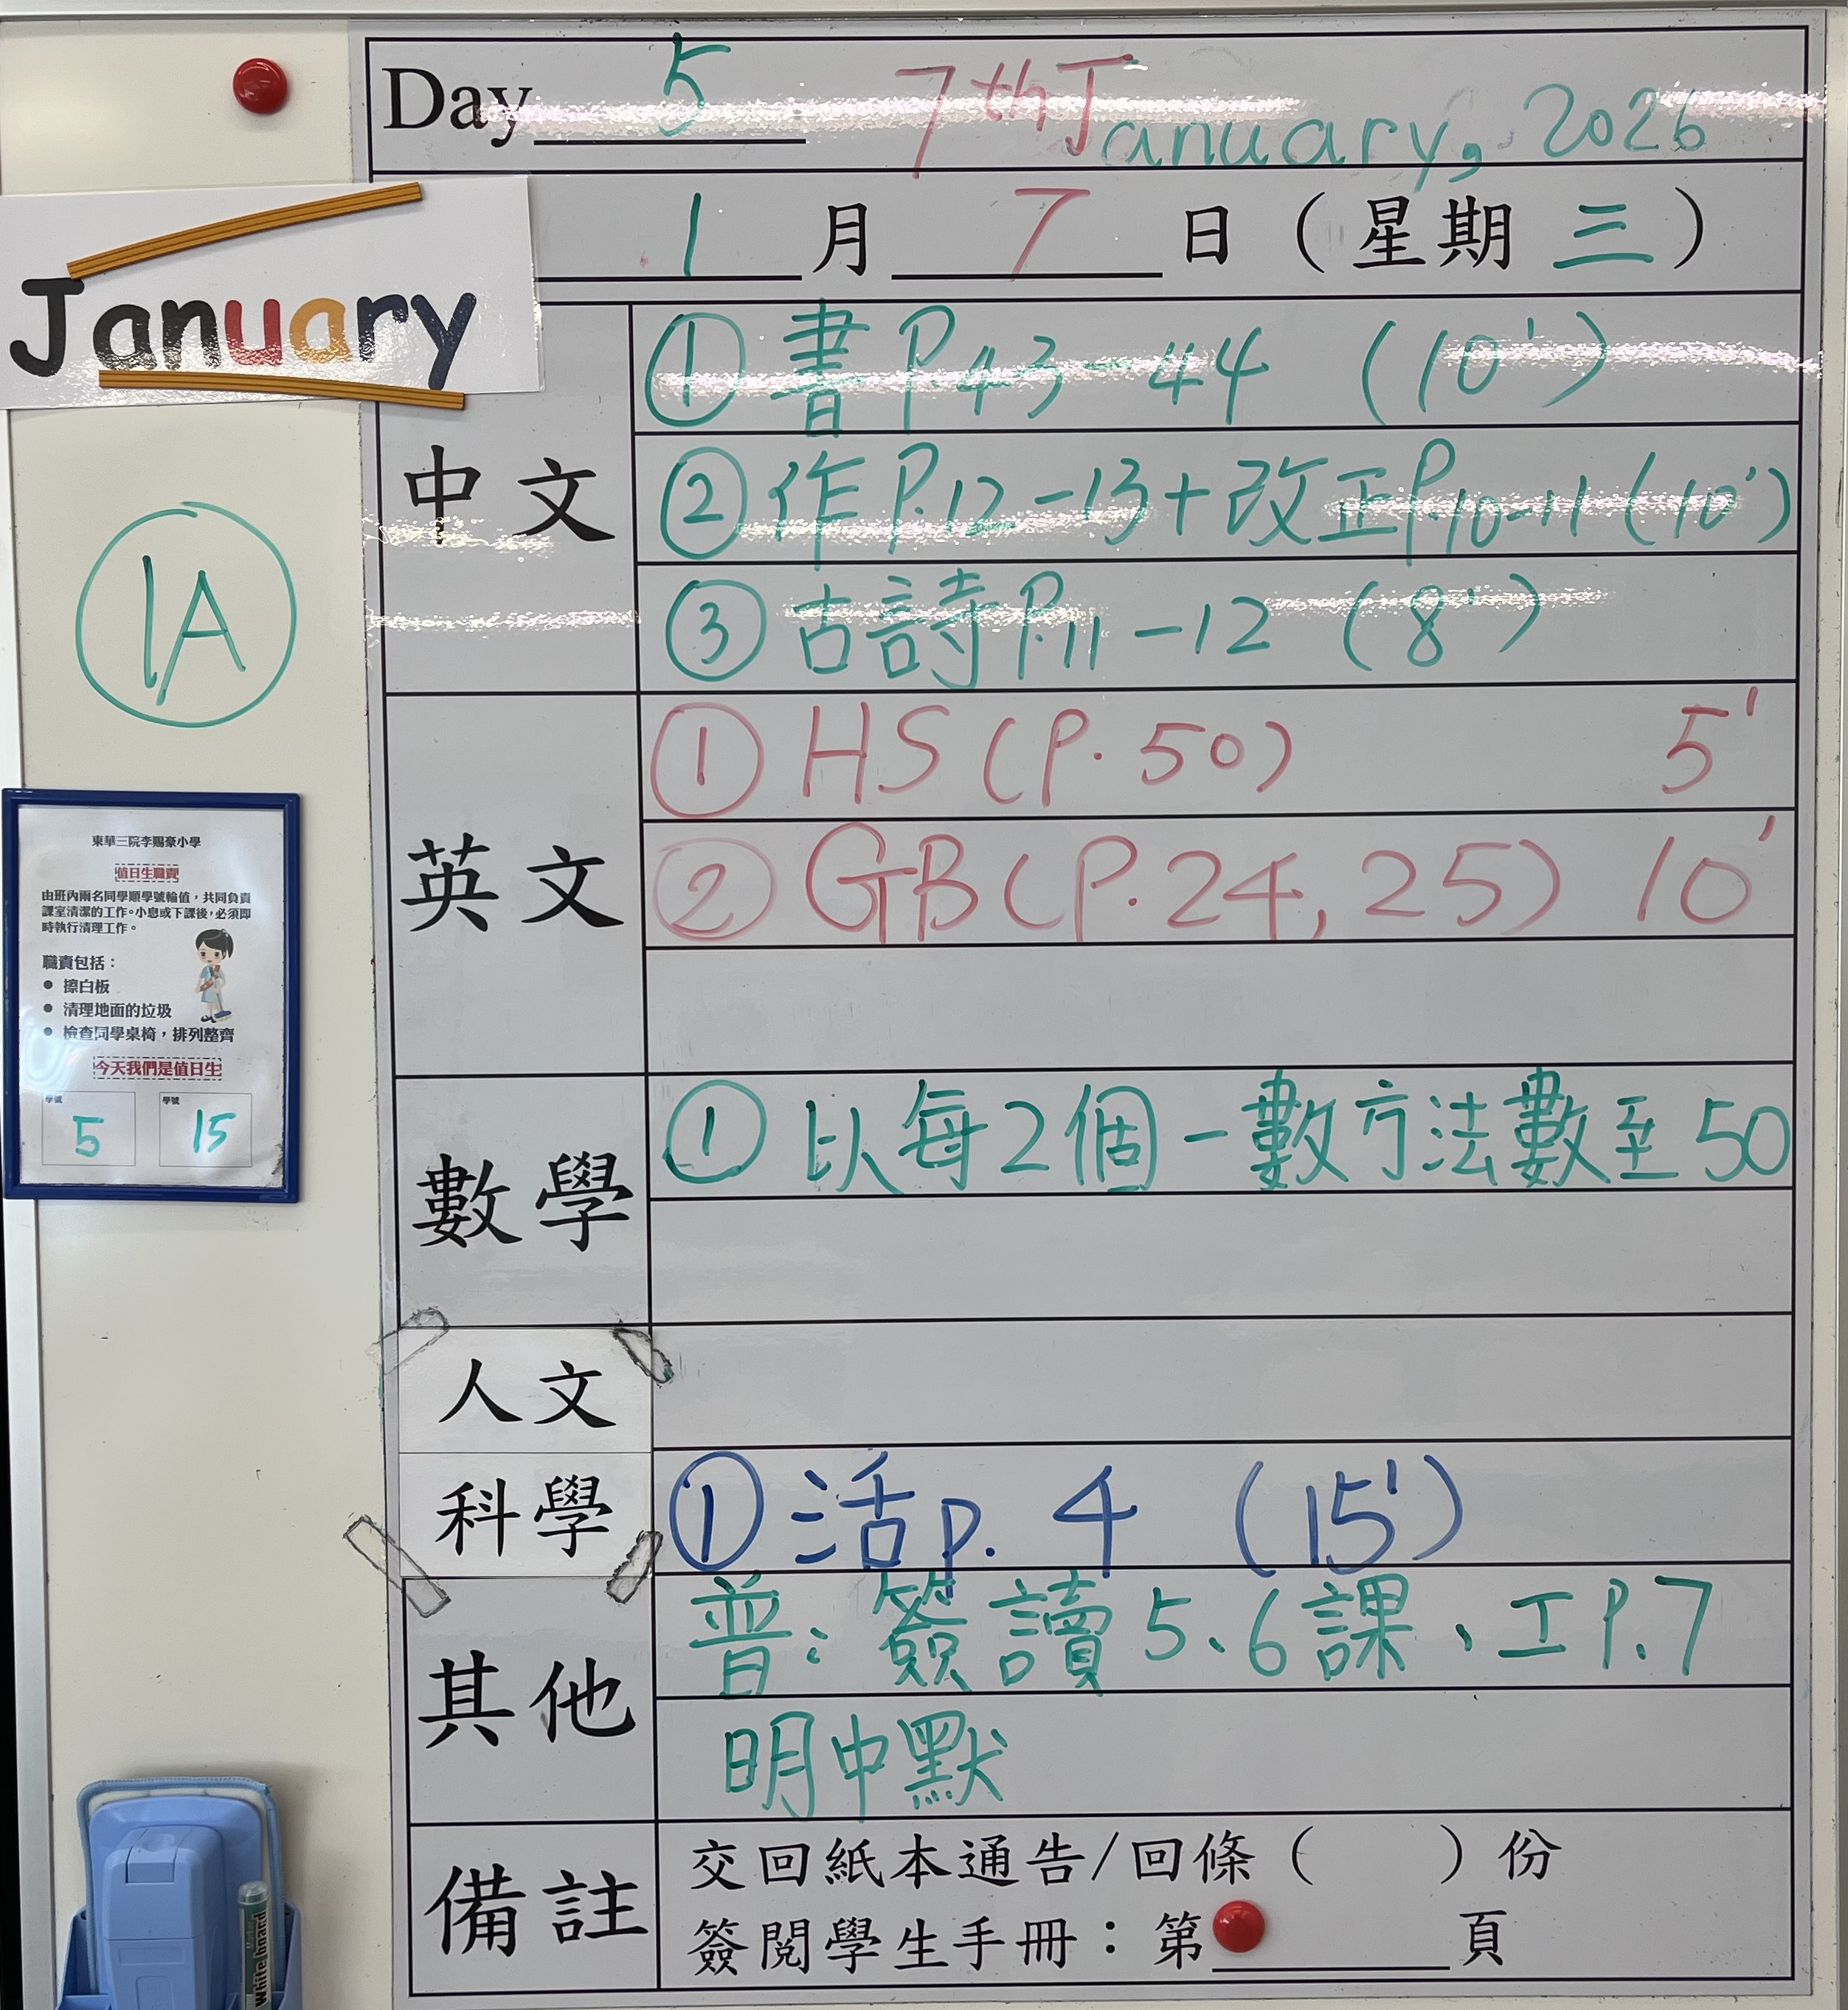 Day 5 7th January, 2026
1 月 7 日（星期 三）
January
中文
① 書 P.43-44 (10')
② 作 P.12-13+改正P.10-11 (10')
③ 古詩 P.11-12 (8')
1A
英文
① HS (P. 50) 5'
② GB (P. 24, 25) 10'
東華三院李賜豪小學
值日生職責
由班內兩名同學順學號輪值，共同負責
課室清潔的工作。小息或下課後，必須即
時執行清理工作。
職責包括：
● 擦白板
● 清理地面的垃圾
● 檢查同學桌椅，排列整齊
今天我們是值日生
學號 學號
5 15
數學
① 以每2個一數方法數至50
人文
科學
① 活 p. 4 (15')
其他
普：簽讀5、6課、工P.7
明中默
備註
交回紙本通告/回條（ ）份
簽閱學生手冊：第 頁
White board